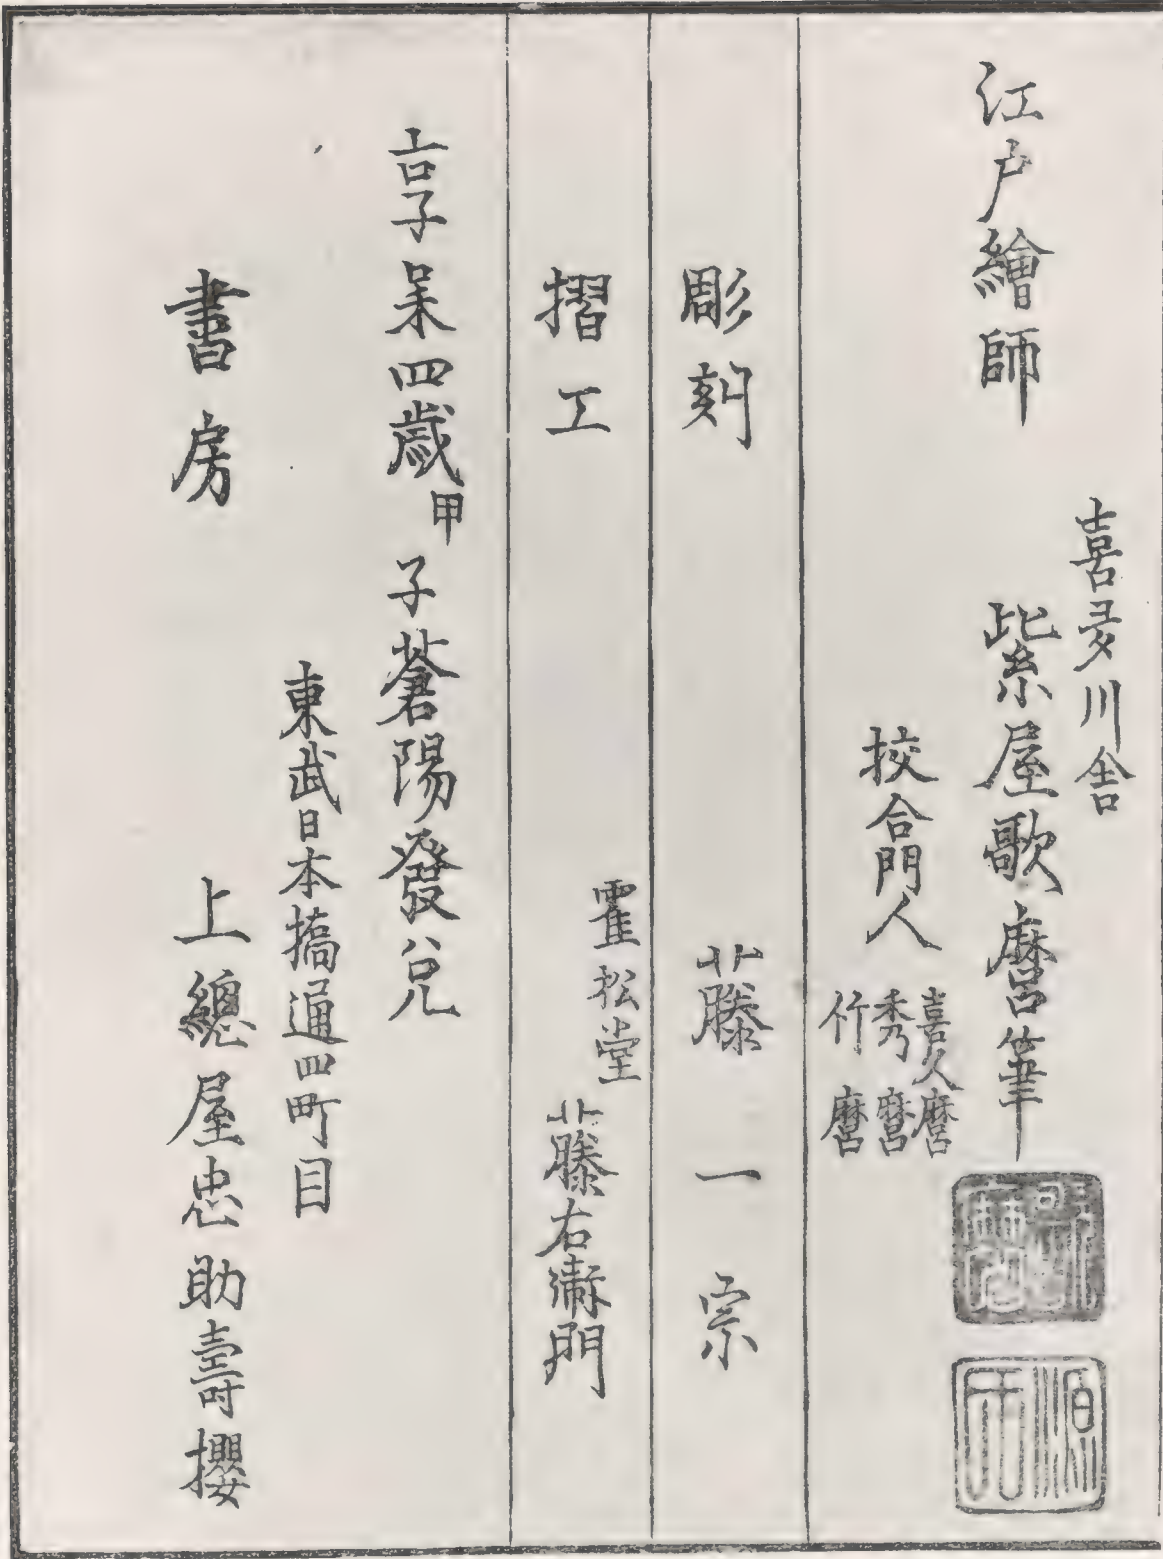 江戸繪師
喜多川舎
紫屋歌麿筆
校合門人
喜久麿
秀麿
竹麿
彫刻
藤一宗
摺工
霍松堂
藤右衛門
享和四歳甲子蒼陽發兌
東武日本橋通四町目
書房
上總屋忠助壽櫻
歌麿